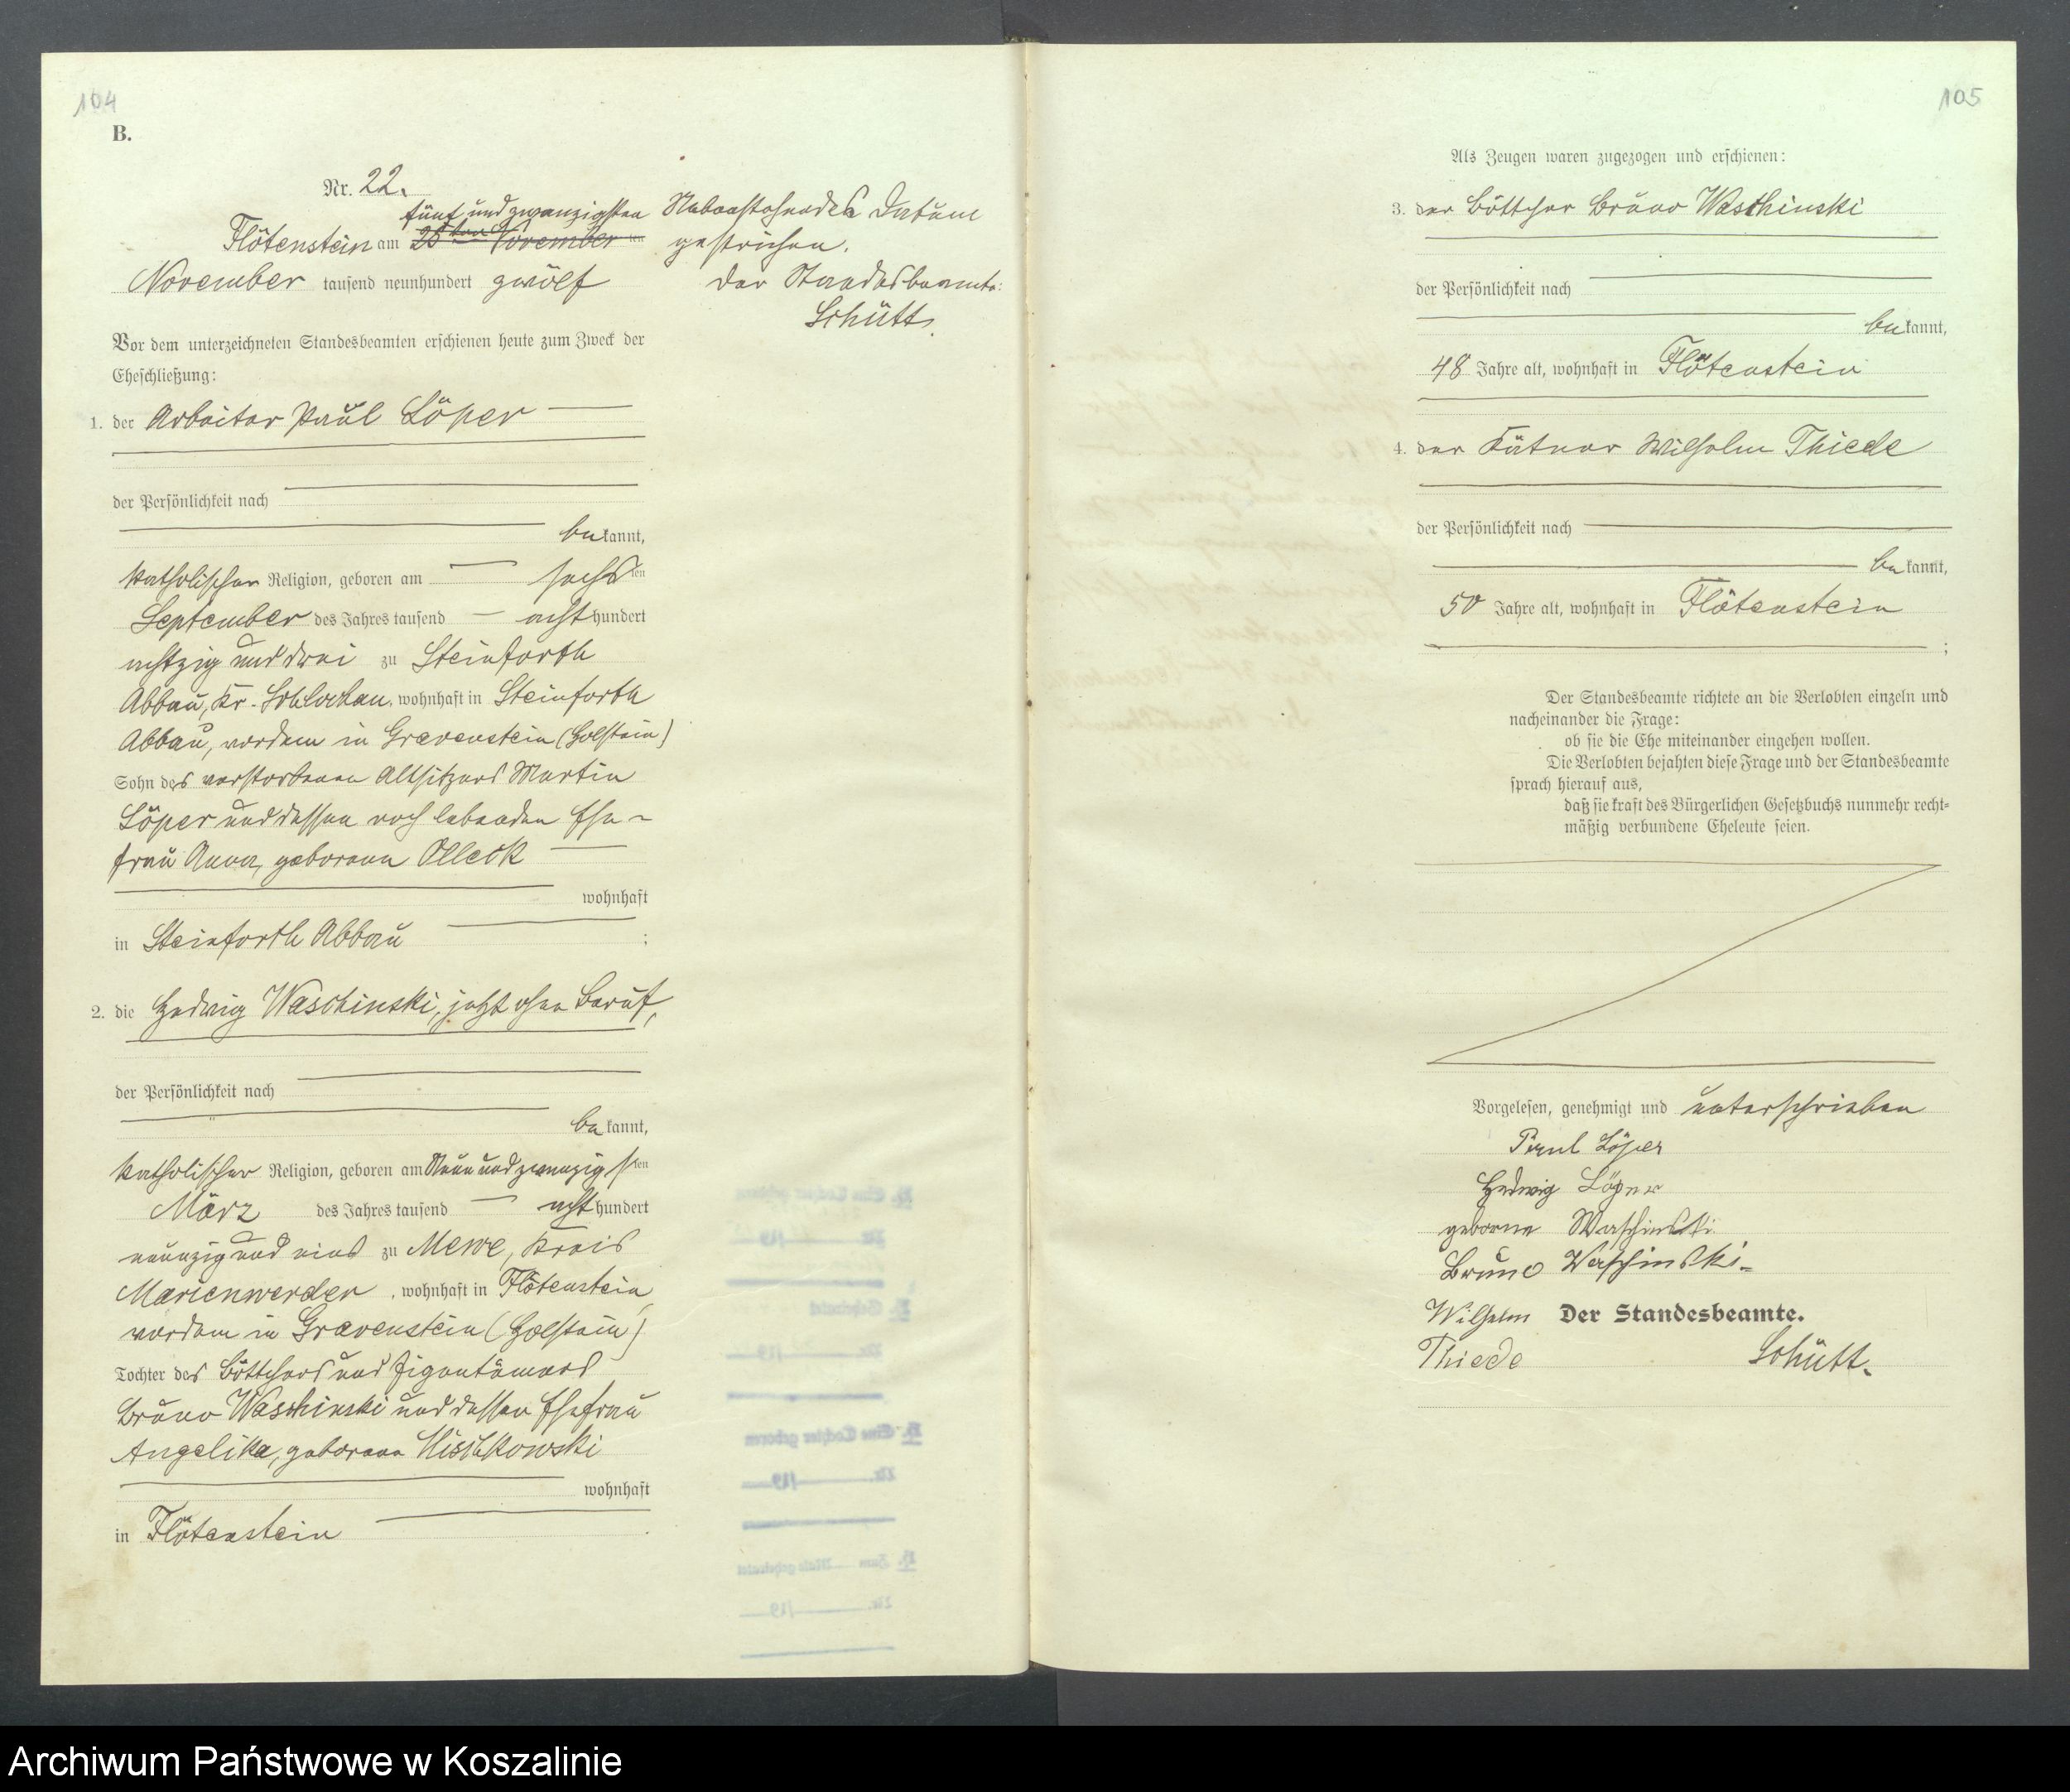 104
B.
Nr. 22.
fünf und zwanzigsten
Flötenstein am 25ten November ten
November tausend neunhundert zwölf
Nebenstehendes Datum
gestrichen.
Der Standesbeamte:
Schütt.
Vor dem unterzeichneten Standesbeamten erschienen heute zum Zweck der
Eheschließung:
1. der Arbeiter Paul Löper
der Persönlichkeit nach
bekannt,
katholischer Religion, geboren am sechsten
September des Jahres tausend acht hundert
achtzig und drei zu Steinforth
Abbau, Kr. Schlochau, wohnhaft in Steinforth
Abbau, vordem in Gravenstein (Holstein)
Sohn des verstorbenen Altsitzers Martin
Löper und dessen noch lebenden Ehe-
frau Anna, geborene Olleck
wohnhaft
in Steinforth Abbau ;
2. die Hedwig Waschinski, jetzt ohne Beruf,
der Persönlichkeit nach
bekannt,
katholischer Religion, geboren am Neun und zwanzigsten
März des Jahres tausend acht hundert
neunzig und eins zu Mewe, Kreis
Marienwerder, wohnhaft in Flötenstein,
vordem in Gravenstein (Holstein)
Tochter des Böttchers und Eigentümers
Bruno Waschinski und dessen Ehefrau
Angelika, geborene
wohnhaft
in Flötenstein .
105
Als Zeugen waren zugezogen und erschienen:
3. der Böttcher Bruno Waschinski
der Persönlichkeit nach
bekannt,
48 Jahre alt, wohnhaft in Flötenstein
4. der Kätner Wilhelm Thiede
der Persönlichkeit nach
bekannt,
50 Jahre alt, wohnhaft in Flötenstein
;
Der Standesbeamte richtete an die Verlobten einzeln und
nacheinander die Frage:
ob sie die Ehe miteinander eingehen wollen.
Die Verlobten bejahten diese Frage und der Standesbeamte
sprach hierauf aus,
daß sie kraft des Bürgerlichen Gesetzbuchs nunmehr recht-
mäßig verbundene Eheleute seien.
Vorgelesen, genehmigt und unterschrieben
Paul Löper
Hedwig Löper
geborne Waschinski
Bruno Waschinski.
Wilhelm Der Standesbeamte.
Thiede Schütt.
Archiwum Państwowe w Koszalinie